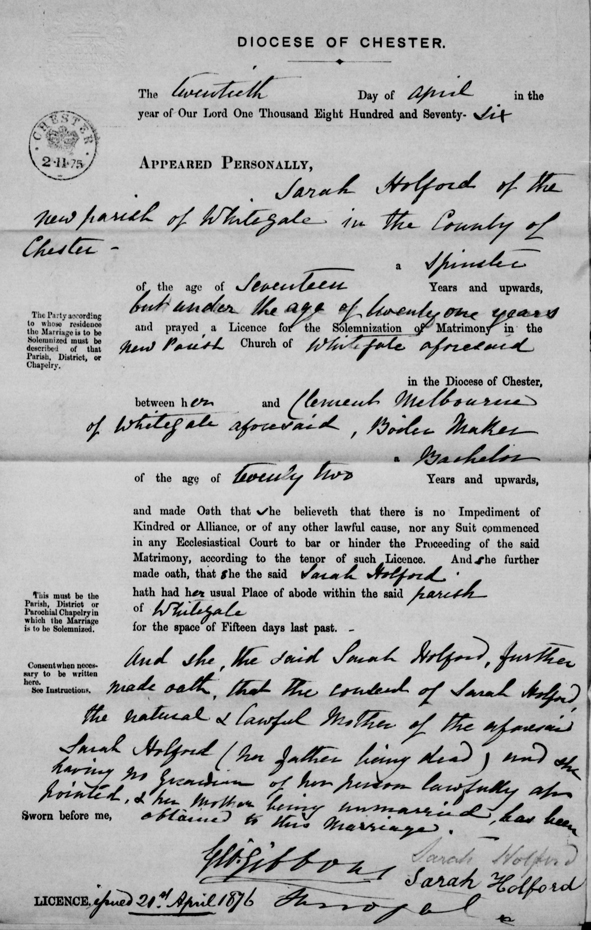 DIOCESE OF CHESTER.
The twentieth Day of April in the
year of Our Lord One Thousand Eight Hundred and Seventy- Six
CHESTER
2·11·75
APPEARED PERSONALLY,
Sarah Holford of the
new parish of Whitegate in the County of
Chester -
a Spinster
of the age of Seventeen Years and upwards,
but under the age of twenty one years
The Party according
to whose residence
the Marriage is to be
Solemnized must be
described of that
Parish, District, or
Chapelry.
and prayed a Licence for the Solemnization of Matrimony in the
new Parish Church of Whitegate aforesaid
in the Diocese of Chester,
between her and Clement Melbourne
of Whitegate aforesaid, Boiler Maker
a Bachelor
of the age of twenty two Years and upwards,
and made Oath that she believeth that there is no Impediment of
Kindred or Alliance, or of any other lawful cause, nor any Suit commenced
in any Ecclesiastical Court to bar or hinder the Proceeding of the said
Matrimony, according to the tenor of such Licence. And she further
made oath, that she the said Sarah Holford
This must be the
Parish, District or
Parochial Chapelry in
which the Marriage
is to be Solemnized.
hath had her usual Place of abode within the said parish
of Whitegate
for the space of Fifteen days last past. -
Consent when neces-
sary to be written
here.
See Instructions.
And she, the said Sarah Holford, further
made oath, that the consent of Sarah Holford,
the natural & lawful Mother of the aforesaid
Sarah Holford (her father being dead) and she
having no Guardian of her person lawfully ap-
pointed, & her mother being unmarried, has been
obtained to this Marriage.
Sworn before me,
Geo. Gibbons
Sarah Holford
Sarah Holford
LICENCE, issued 21st April 1876